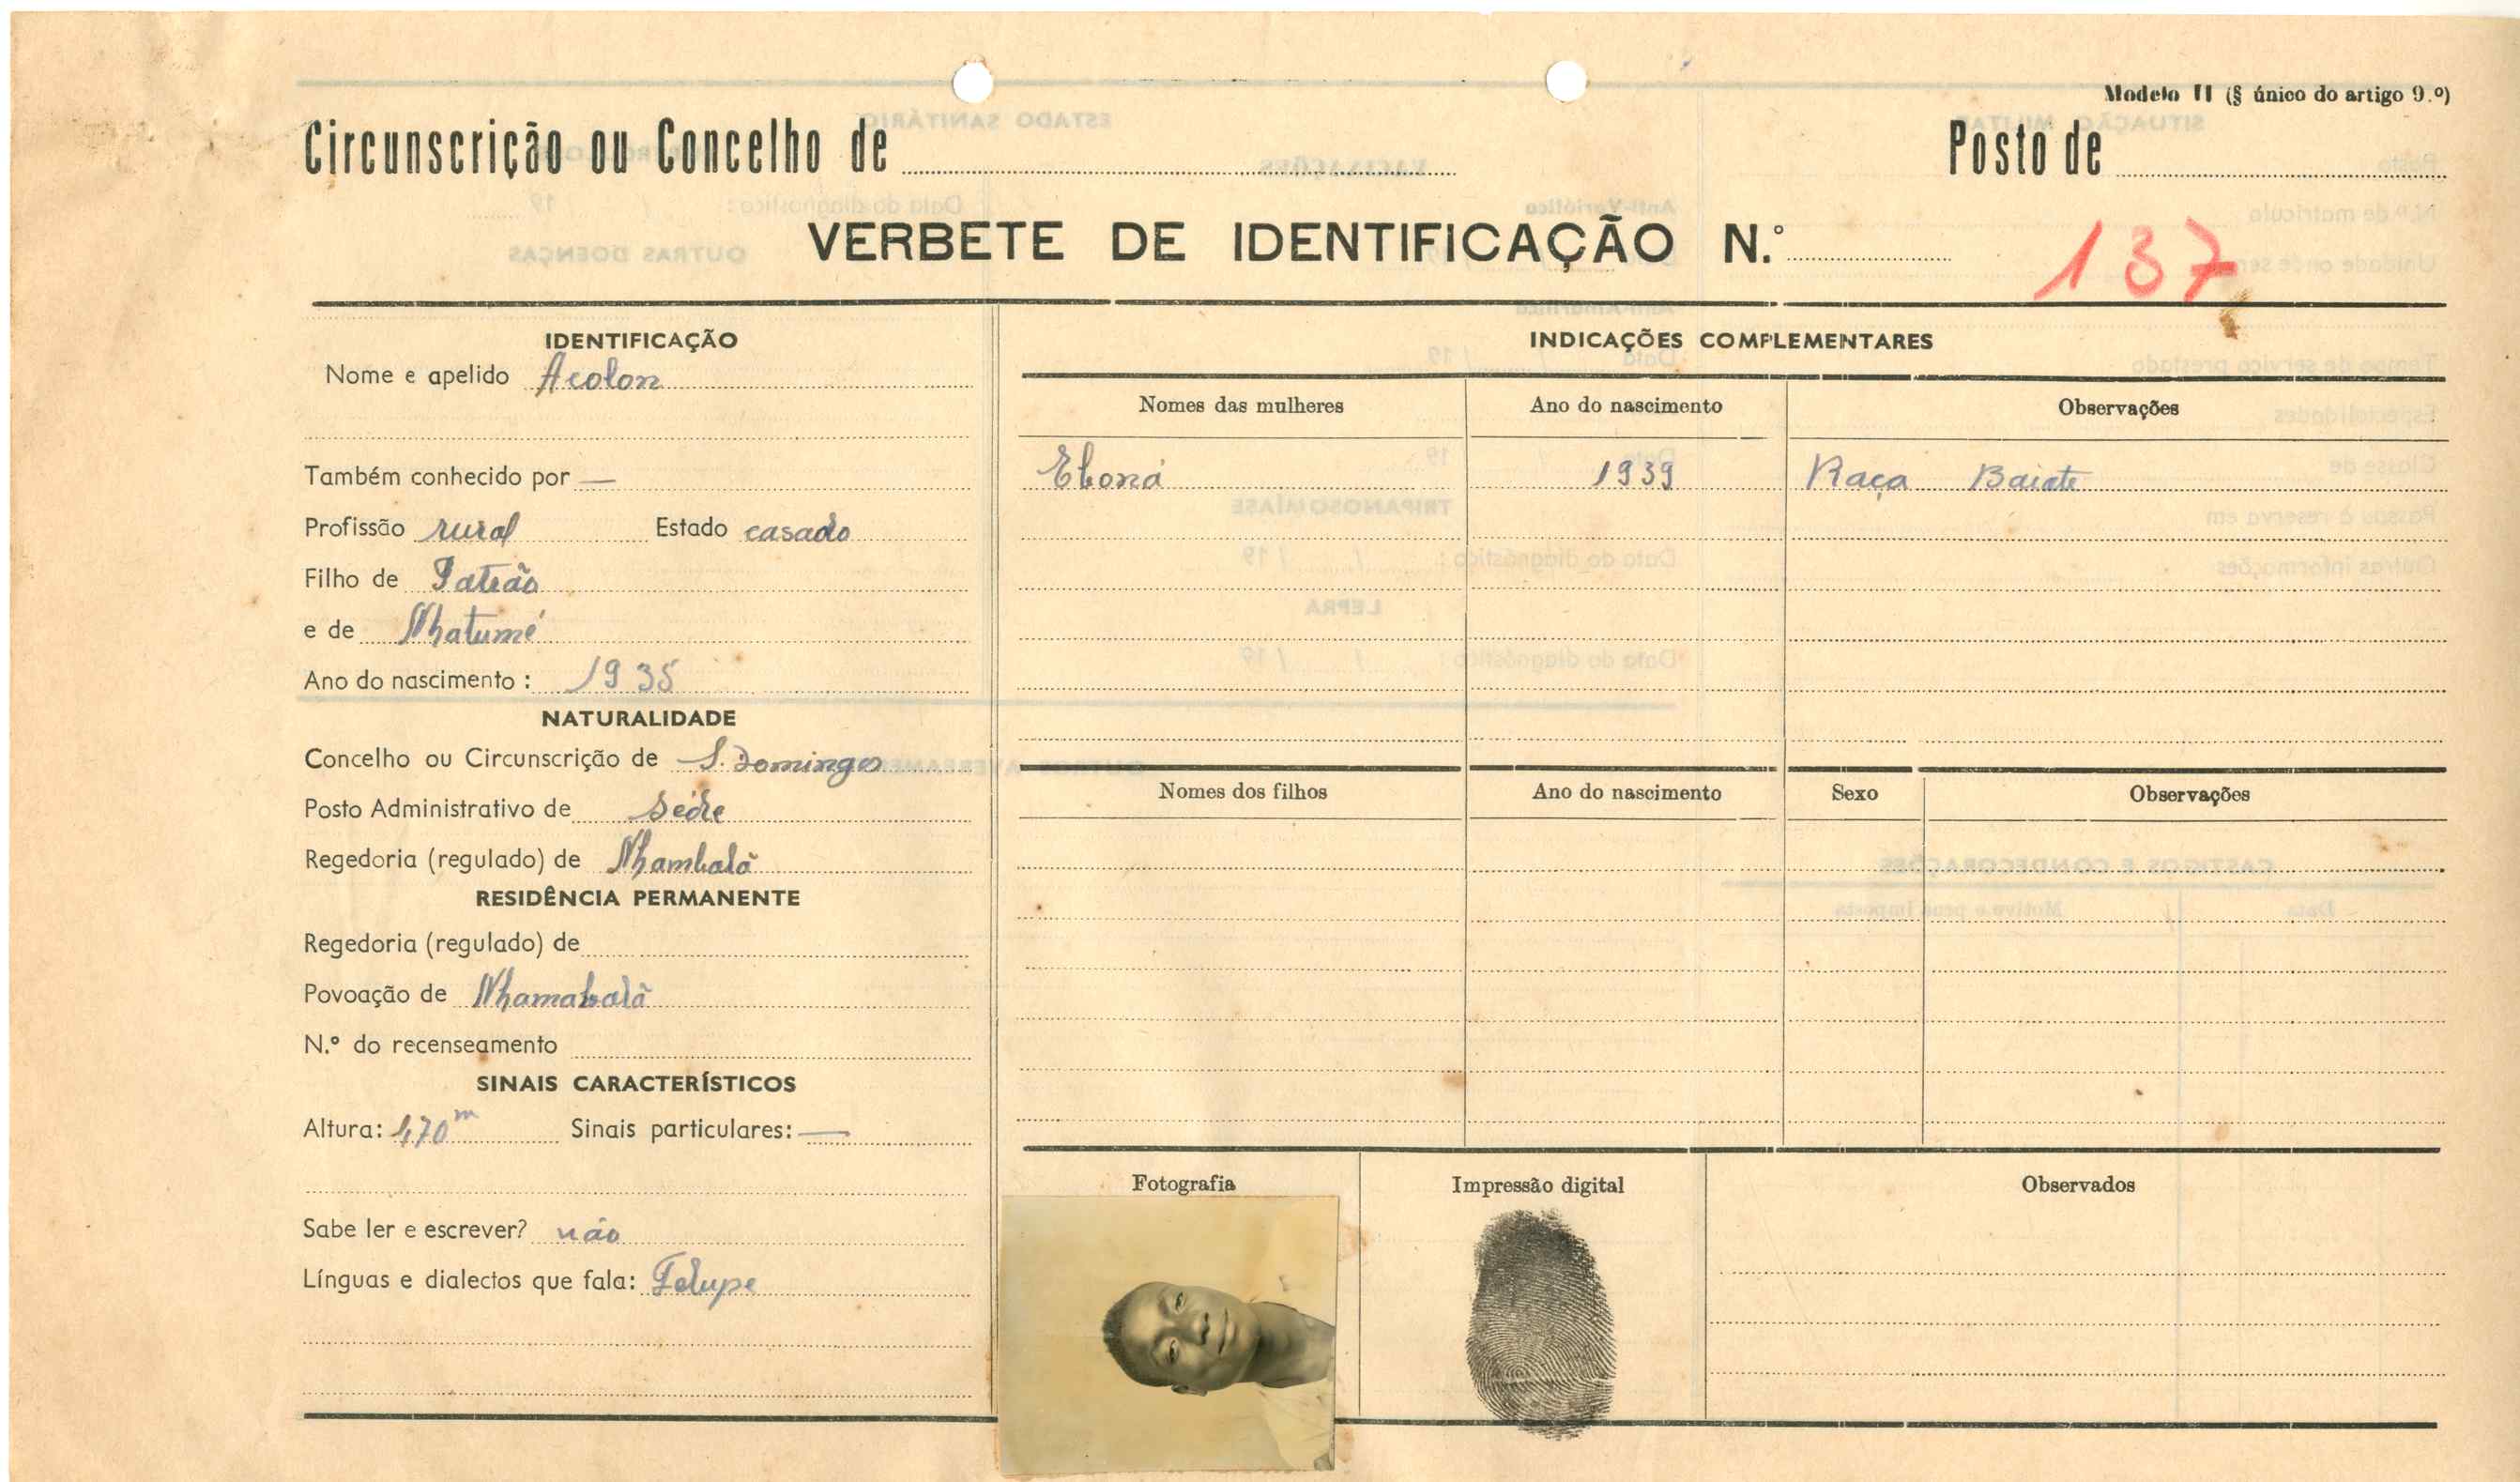 Modelo II (§ único do artigo 9.º)
Circunscrição ou Concelho de
Posto de
VERBETE DE IDENTIFICAÇÃO N.º
137
IDENTIFICAÇÃO
Nome e apelido Acolon
Também conhecido por —
Profissão rural Estado casado
Filho de Patrão
e de Nhatumé
Ano do nascimento : 1935
NATURALIDADE
Concelho ou Circunscrição de S. Domingos
Posto Administrativo de Séde
Regedoria (regulado) de Nhambalã
RESIDÊNCIA PERMANENTE
Regedoria (regulado) de
Povoação de Nhamabalã
N.º do recenseamento
SINAIS CARACTERÍSTICOS
Altura: 1,70 m Sinais particulares: —
Sabe ler e escrever? não
Línguas e dialectos que fala: Felupe
INDICAÇÕES COMPLEMENTARES
Nomes das mulheres Ano do nascimento Observações
Eboná 1939 Raça Baiote
Nomes dos filhos Ano do nascimento Sexo Observações
Fotografia Impressão digital Observados